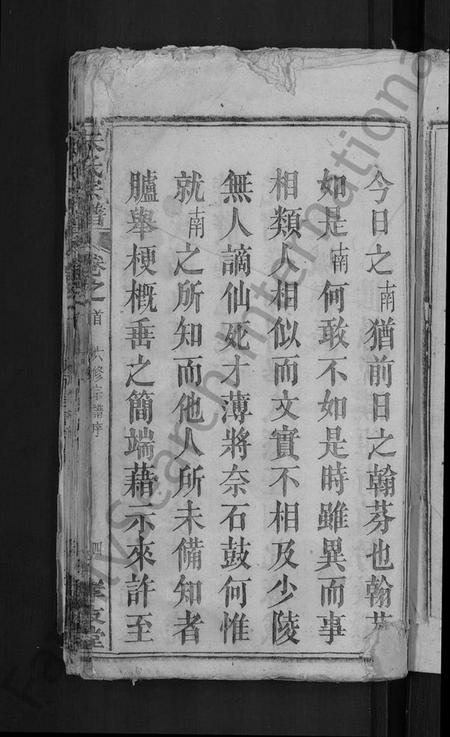 今日之南猶前日之翰芬也翰芬
如是南何敢不如是時雖異而事
相類人相似而文實不相及少陵
無人謫仙死才薄將奈石鼓何惟
就南之所知而他人所未備知者
臚舉梗概垂之簡端藉示來許至
氏宗譜 卷之首 六修宗譜序 四
FamilySearch International